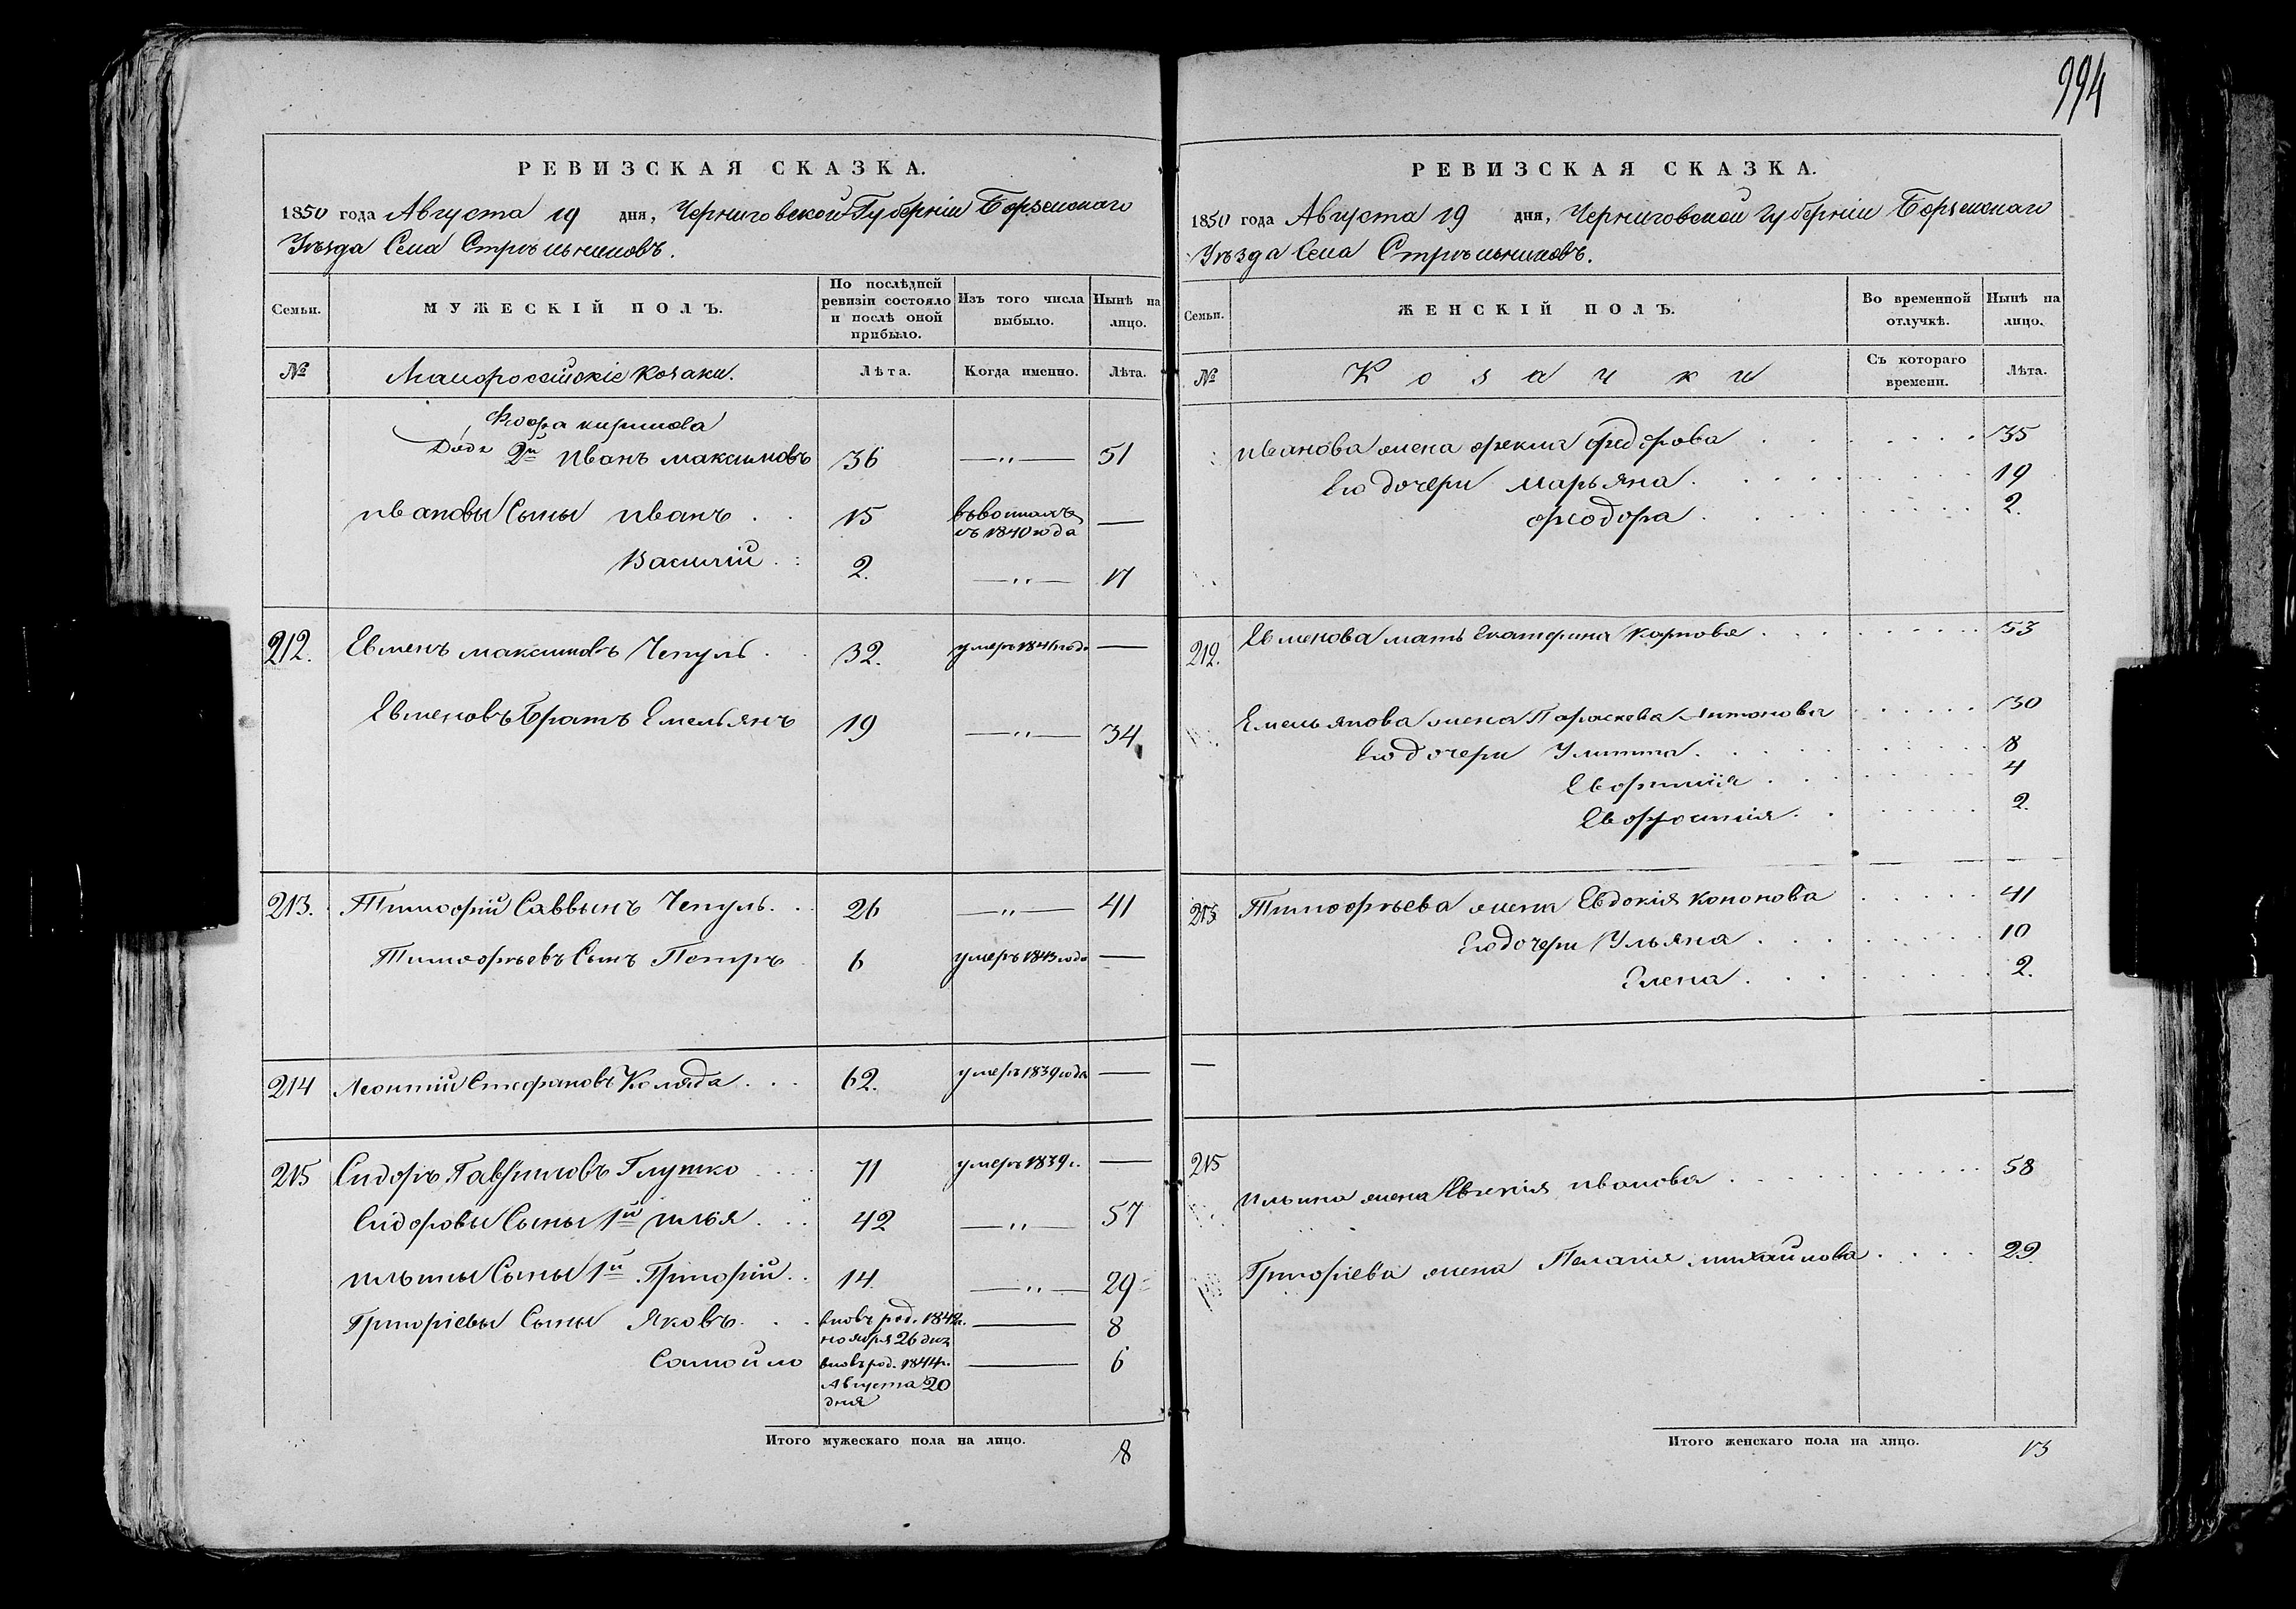 994
РЕВИЗСКАЯ СКАЗКА.
1850 года Августа 19 дня, Черниговской Губерніи Борзенскаго
Уѣзда Села Стрѣльниковъ.
Семьи. МУЖЕСКІЙ ПОЛЪ. По послѣдней ревизіи состояло и послѣ оной прибыло. Изъ того числа выбыло. Нынѣ на лицо.
№ Малороссійскіе козаки. Лѣта. Когда именно. Лѣта.
Кирилова
Дядя 2й Иванъ Максимовъ 36 —„— 51
Ивановы Сыны Иванъ . . 15 съ 1840 года —
Василій . : 2. —„— 17
212. Евменъ Максимовъ Чепуль . . 32. умеръ 1841 года —
Евменовъ Братъ Емельянъ 19 —„— 34
213. Тимофій Саввинъ Чепуль. . 26 —„— 41
Тимофѣевъ Сынъ Петръ 6 умеръ 1843 года —
214 Леонтій Стефановъ Коляда . . . 62. умеръ 1839 года —
215 Сидоръ Гавриловъ Глушко . . . . 71 умеръ 1839 г. —
Сидоровы Сыны 1й Илья . . . 42 —„— 57
Ильины Сыны 1й Григорій . . 14 —„— 29
Григоріевы Сыны Яковъ. . . вновь род. 1842 г. — 8
ноября 26 дня
Самойло вновь род. 1844 г. — 6
Августа 20
дня
Итого мужескаго пола на лицо. 8
РЕВИЗСКАЯ СКАЗКА.
1850 года Августа 19 дня, Черниговской Губерніи Борзенскаго
Уѣзда Села Стрѣльниковъ.
Семьи. ЖЕНСКІЙ ПОЛЪ. Во временной отлучкѣ. Нынѣ на лицо.
№ Козачки Съ котораго времени. Лѣта.
Иванова жена Фекла Федорова . . . . . . . 35
Ею дочери Марьяна . . . . . . . . . 19
Феодора . . . . . . . . . 2.
212. Евменова мать Екатерина Карпова . . . . . . . . . 53
Емельянова жена Параскева Антонова . . . . . . 30
Ею дочери Улитта . . . . . . . . . 8
Евфимія . . . . . . . . . 4
Евфросинія . . . . . . . . 2.
213 Тимофѣева жена Евдокія Кононова . . . . . 41
Ею дочери Ульяна . . . . . . . . 10
Елена . . . . . . . . 2.
—
215
Ильина жена Евгенія Иванова . . . . . . . . . 58
Григоріева жена Пелагія Михайлова . . . . 29
Итого женскаго пола на лицо. 13